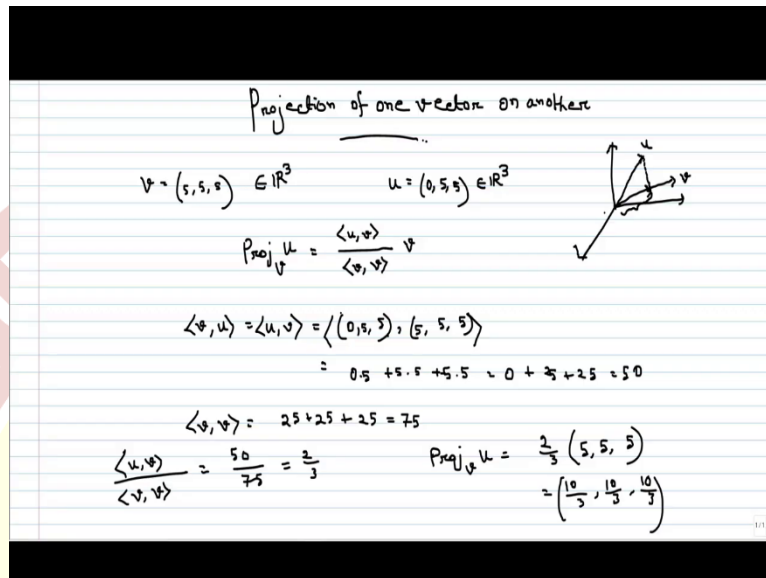 Projection of one vector on another
v = (5, 5, 5) ∈ ℝ³ u = (0, 5, 5) ∈ ℝ³
u
v
Proj_v u = <u, v> / <v, v> v
<v, u> = <u, v> = <(0, 5, 5), (5, 5, 5)>
= 0.5 + 5.5 + 5.5 = 0 + 25 + 25 = 50
<v, v> = 25 + 25 + 25 = 75
<u, v> / <v, v> = 50/75 = 2/3 Proj_v u = 2/3 (5, 5, 5)
= (10/3, 10/3, 10/3)
1/1